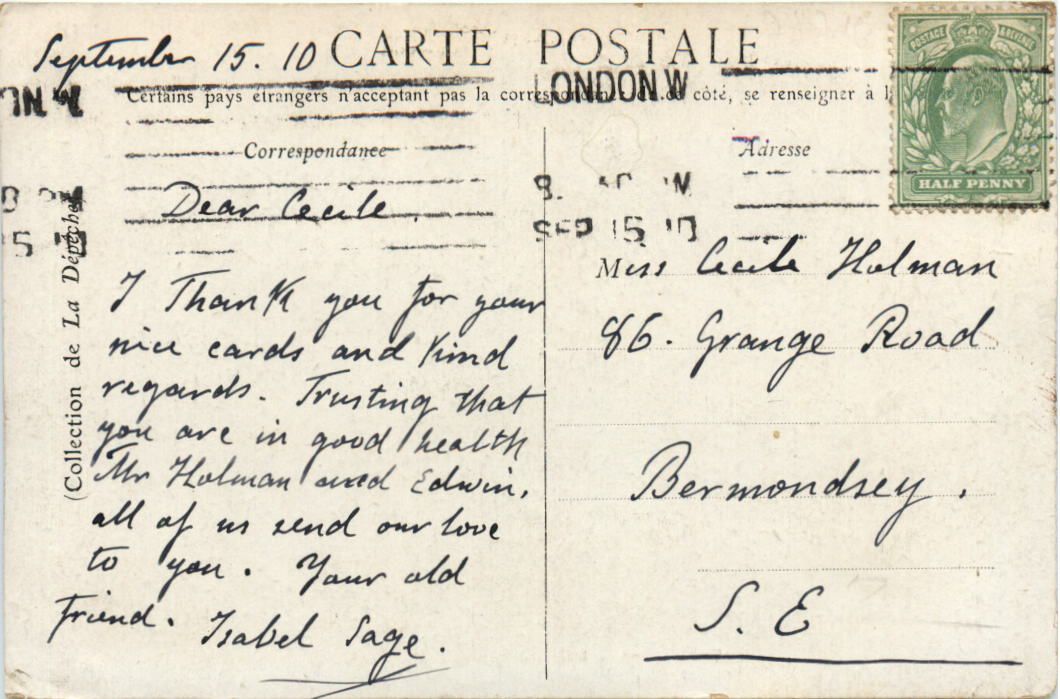 September 15. 10
CARTE POSTALE
LONDON W
Certains pays étrangers n'acceptant pas la correspondance de ce côté, se renseigner à l
Correspondance
Dear Cecile,
I Thank you for your
nice cards and kind
regards. Trusting that
you are in good health
Mr Holman and Edwin,
all of us send our love
to you. Your old
friend. Isabel Sage.
(Collection de La Dépêche
Adresse
SEP 15 10
POSTAGE & REVENUE
HALF PENNY
Miss Cecile Holman
86. Grange Road
Bermondsey.
S. E